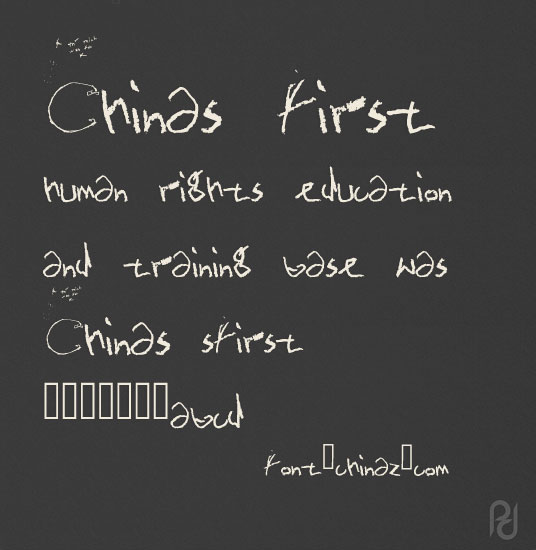 Chinas first
human rights education
and training base was
Chinas sfirst
□□□□□□□abcd
font□chinaz□com